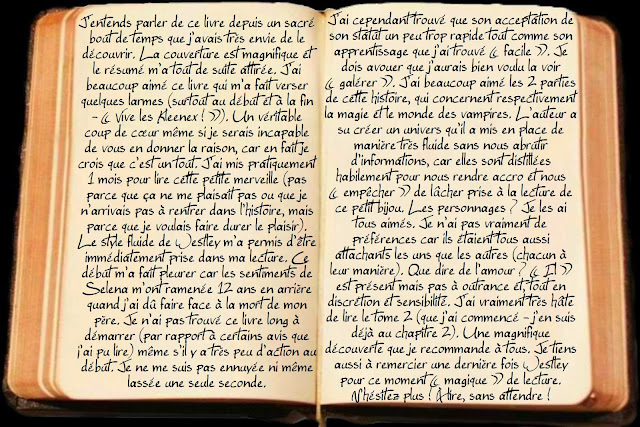 J'entends parler de ce livre depuis un sacré
bout de temps que j'avais très envie de le
découvrir. La couverture est magnifique et
le résumé m'a tout de suite attirée. J'ai
beaucoup aimé ce livre qui m'a fait verser
quelques larmes (surtout au début et à la fin
- « vive les Kleenex ! »). Un véritable
coup de cœur même si je serais incapable
de vous en donner la raison, car en fait je
crois que c'est un tout. J'ai mis pratiquement
1 mois pour lire cette petite merveille (pas
parce que ça ne me plaisait pas ou que je
n'arrivais pas à rentrer dans l'histoire, mais
parce que je voulais faire durer le plaisir).
Le style fluide de Westley m'a permis d'être
immédiatement prise dans ma lecture. Ce
début m'a fait pleurer car les sentiments de
Selena m'ont ramenée 12 ans en arrière
quand j'ai dû faire face à la mort de mon
père. Je n'ai pas trouvé ce livre long à
démarrer (par rapport à certains avis que
j'ai pu lire) même s'il y a très peu d'action au
début. Je ne me suis pas ennuyée ni même
lassée une seule seconde.
J'ai cependant trouvé que son acceptation de
son statut un peu trop rapide tout comme son
apprentissage que j'ai trouvé « facile ». Je
dois avouer que j'aurais bien voulu la voir
« galérer ». J'ai beaucoup aimé les 2 parties
de cette histoire, qui concernent respectivement
la magie et le monde des vampires. L'auteur a
su créer un univers qu'il a mis en place de
manière très fluide sans nous abrutir
d'informations, car elles sont distillées
habilement pour nous rendre accro et nous
« empêcher » de lâcher prise à la lecture de
ce petit bijou. Les personnages ? Je les ai
tous aimés. Je n'ai pas vraiment de
préférences car ils étaient tous aussi
attachants les uns que les autres (chacun à
leur manière). Que dire de l'amour ? « Il »
est présent mais pas à outrance et tout en
discrétion et sensibilité. J'ai vraiment très hâte
de lire le tome 2 (que j'ai commencé - j'en suis
déjà au chapitre 2). Une magnifique
découverte que je recommande à tous. Je tiens
aussi à remercier une dernière fois Westley
pour ce moment « magique » de lecture.
N'hésitez plus ! A lire, sans attendre !